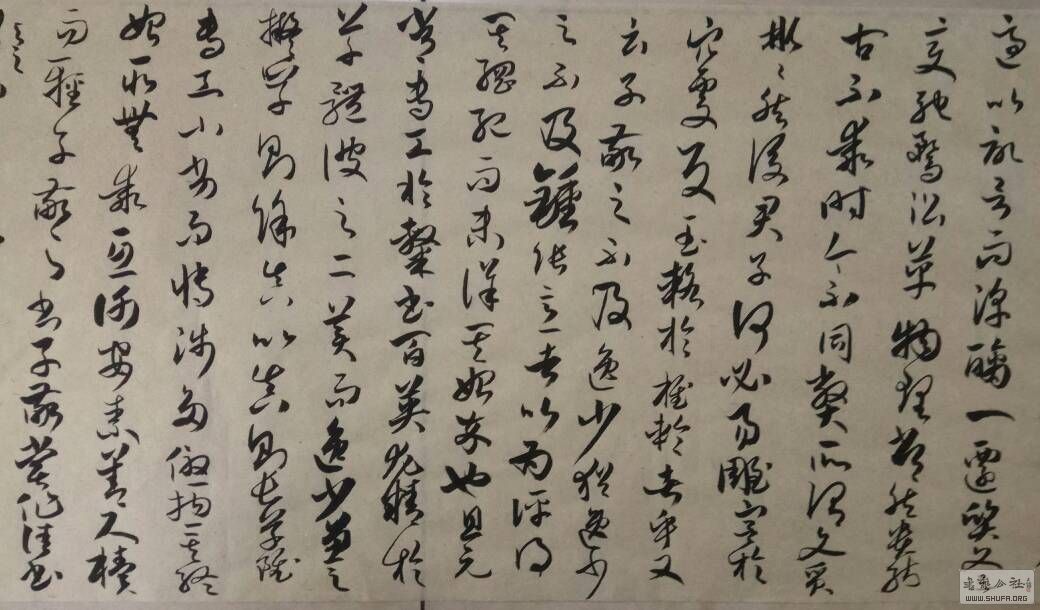 適以記言而淳醨一遷質文
變馳騖沿革物理常然貴能
古不乖時今不同弊所謂文質
彬彬然後君子何必易雕宮於
穴處反玉輅於椎輪者乎又
云子敬之不及逸少猶逸少
之不及鍾張意者以為評得
其綱紀而未詳其始卒也且元
常專工於隸書百英尤精於
草體彼之二美而逸少兼之
擬草則餘真比真則長草雖
專工小劣而博涉多優揔其終
始匪無乖互謝安素善尺牘
而輕子敬之書子敬嘗作佳書
書藝公社
WWW.SHUFA.ORG